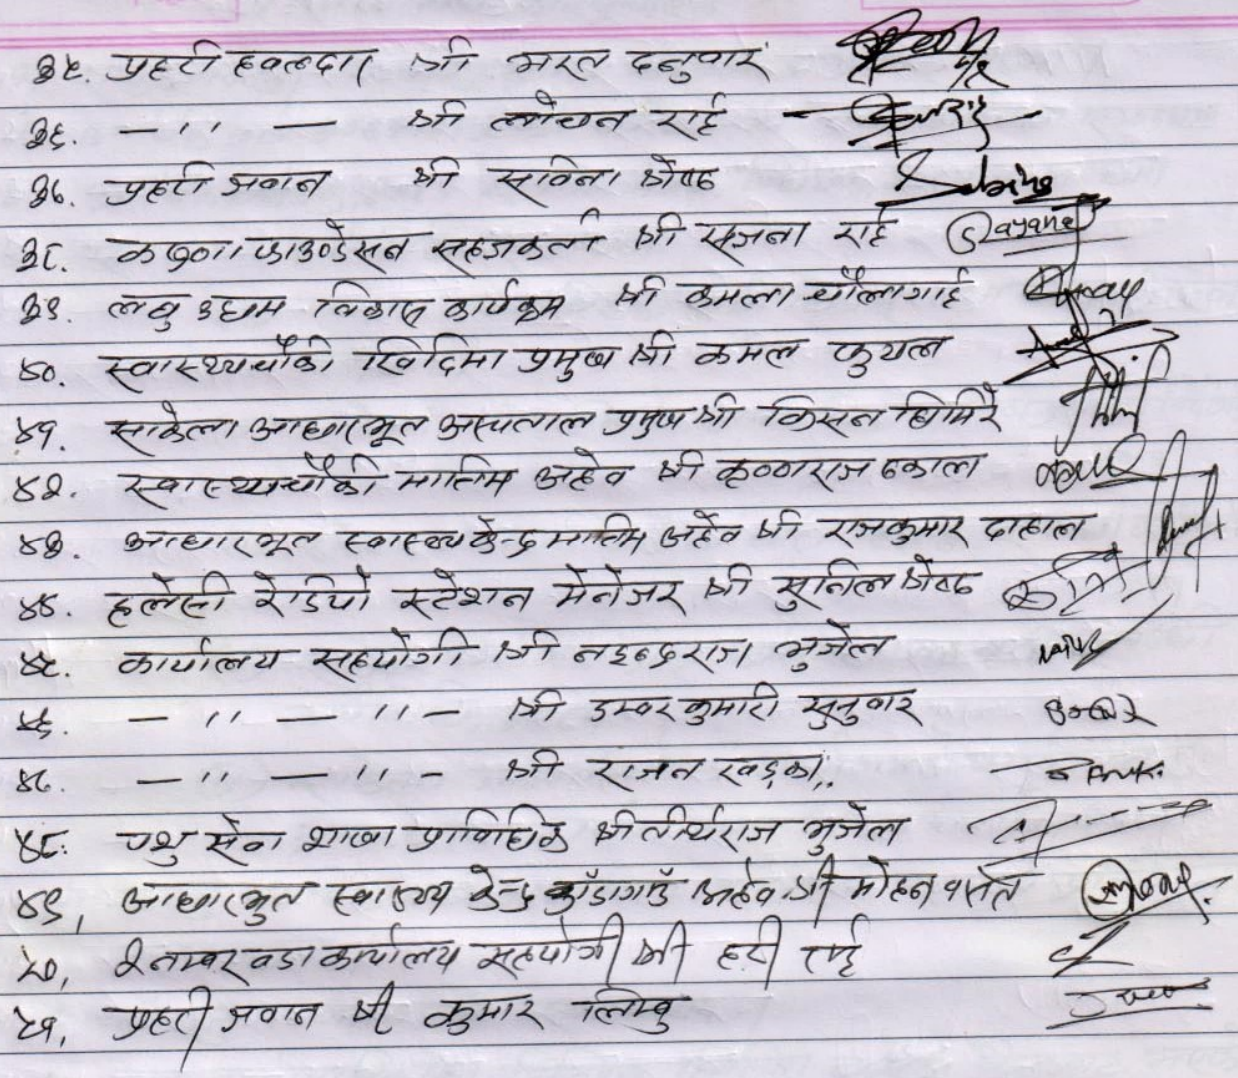 ३५. प्रहरी हवलदार श्री भरत दनुवार
३६. — '' — श्री लोचन राई
३७. प्रहरी जवान श्री सविना श्रेष्ठ Sabina
३८. करुणा फाउण्डेसन सहजकर्ता श्री सृजना राई Sayana
३९. लघु उद्यम विकास कार्यक्रम श्री कमला चौलागाई
४०. स्वास्थ्यचौकी खिदिमा प्रमुख श्री कमल फुयाल
४१. साकेला आधारभूत अस्पताल प्रमुख श्री किसन घिमिरे
४२. स्वास्थ्यचौकी मातिम अहेव श्री कृष्णराज ढकाल
४३. आधारभूत स्वास्थ्य केन्द्र मातिम अहेव श्री राजकुमार दाहाल
४४. हलेसी रेडियो स्टेशन मेनेजर श्री सुनिल श्रेष्ठ
४५. कार्यालय सहयोगी श्री नइन्द्रराज भुजेल
४६. — '' — '' — श्री डम्वर कुमारी सुनुवार
४७. — '' — '' — श्री राजन खड्का
४८. पशु सेवा शाखा प्राविधिक श्री तीर्थराज भुजेल
४९, आधारभुत स्वास्थ्य केन्द्र काँडागाउँ अहेव श्री मोहन वस्नेत
५०, २ नम्वर वडा कार्यालय सहयोगी श्री हरी राई
५१, प्रहरी जवान श्री कुमार लिम्वु